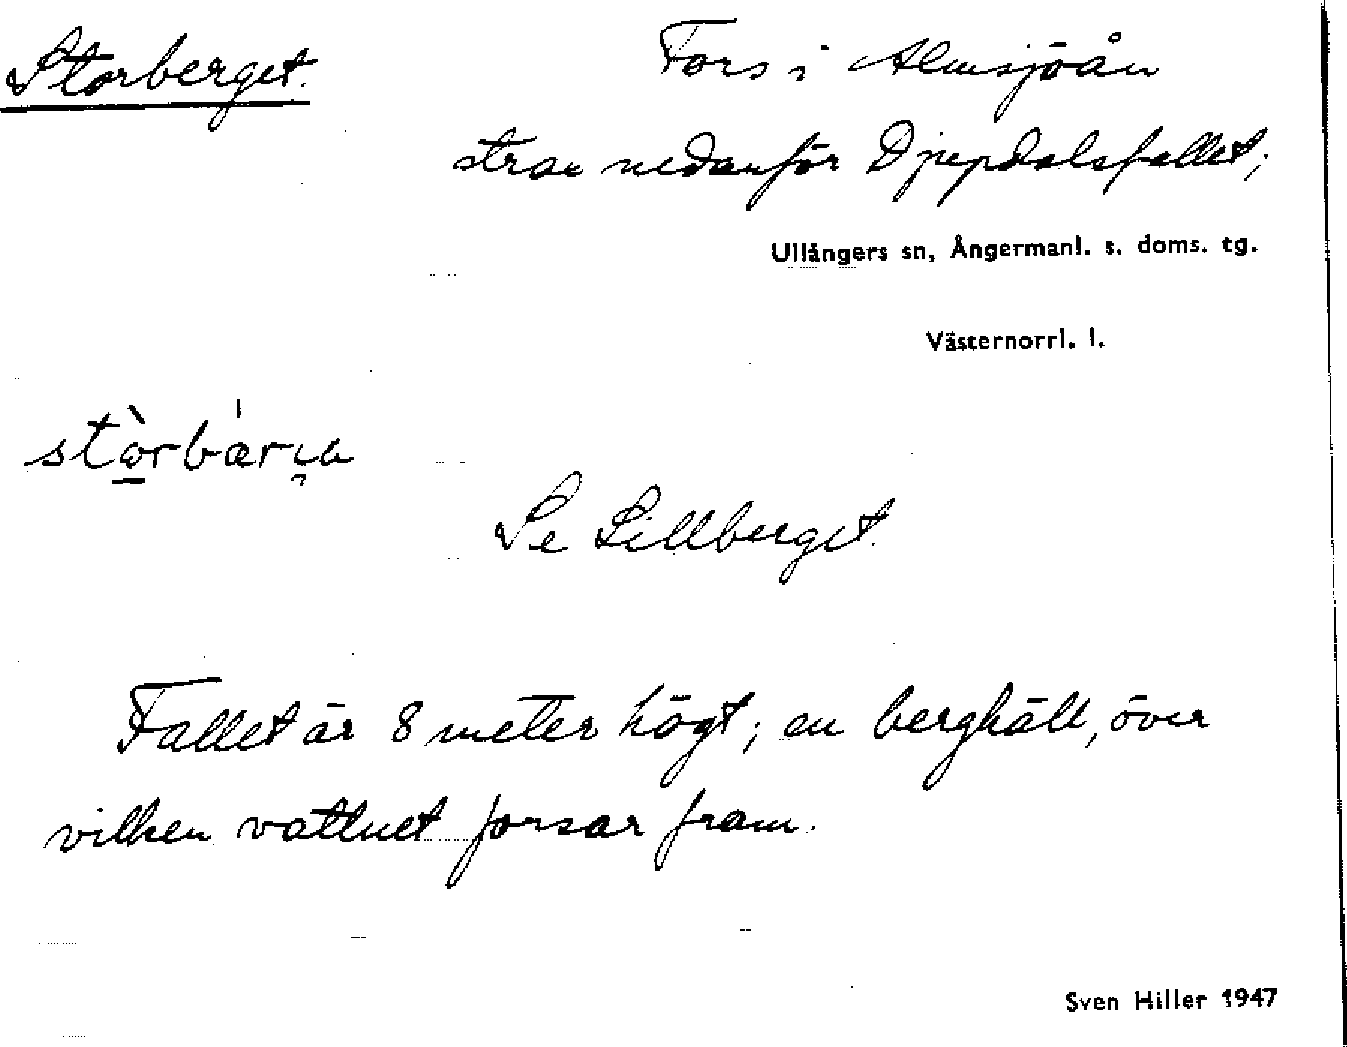 Storberget.
Fors i Almsjöån
strax nedanför Djupdalsfallet;
Ullångers sn, Ångermanl. s. doms. tg.
Västernorrl. l.
Se Lillberget.
Fallet är 8 meter högt; en berghäll, över
vilken vattnet forsar fram.
Sven Hiller 1947